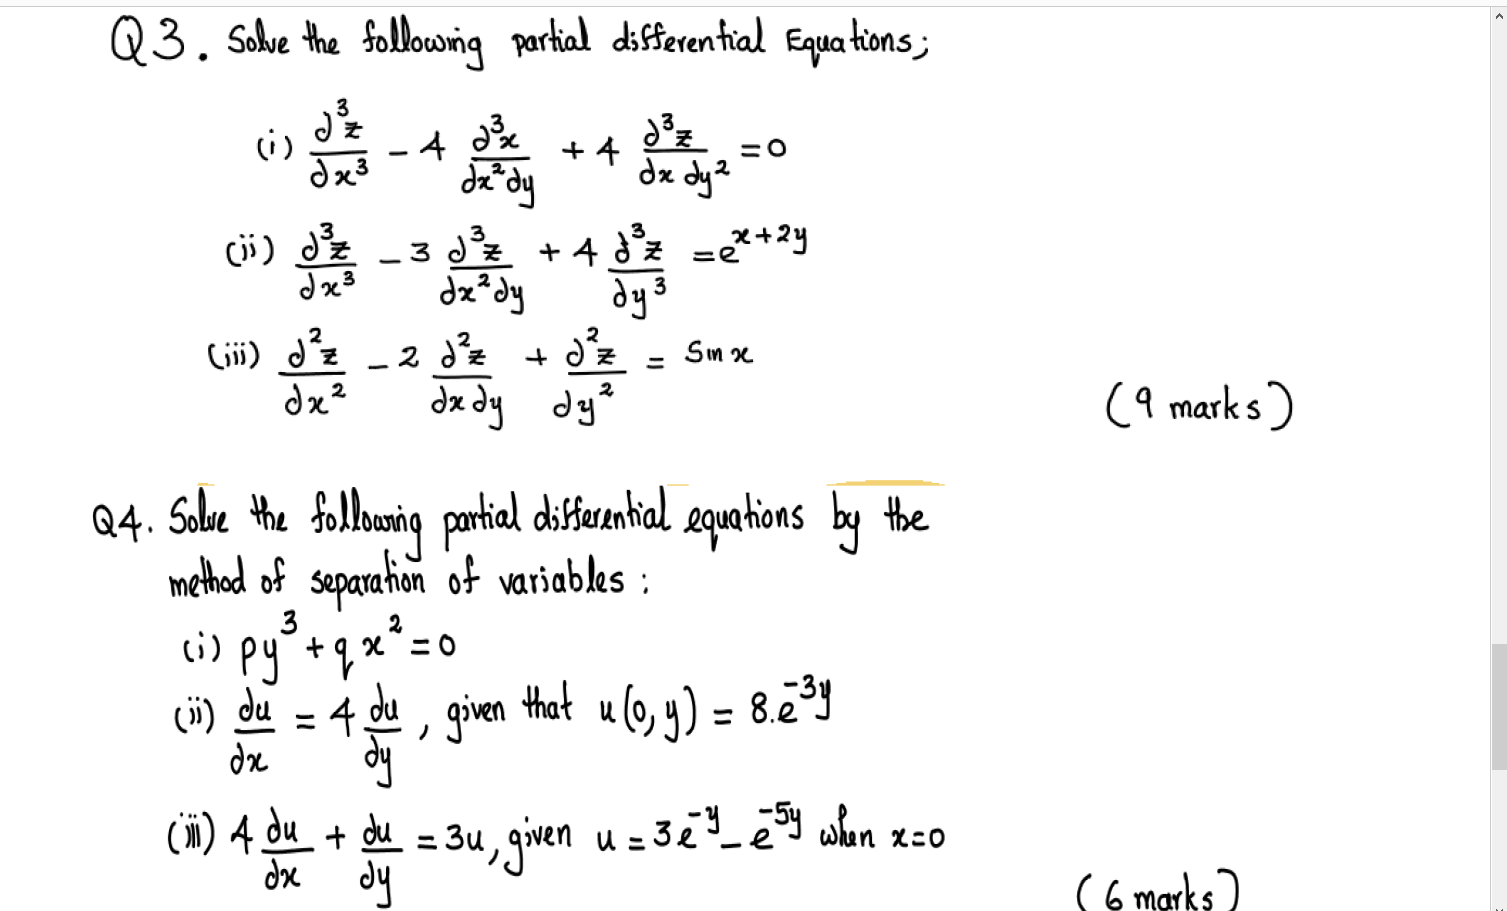 Q3. Solve the following partial differential Equations;
(i) ∂³z/∂x³ - 4 ∂³x/∂x²∂y + 4 ∂³z/∂x∂y² = 0
(ii) ∂³z/∂x³ - 3 ∂³z/∂x²∂y + 4 ∂³z/∂y³ = e^(x+2y)
(iii) ∂²z/∂x² - 2 ∂²z/∂x∂y + ∂²z/∂y² = Sin x
(9 marks)
Q4. Solve the following partial differential equations by the
method of separation of variables:
(i) py³ + qx² = 0
(ii) ∂u/∂x = 4 ∂u/∂y, given that u(0,y) = 8.e^(-3y)
(iii) 4 ∂u/∂x + ∂u/∂y = 3u, given u = 3e^(-y) - e^(-5y) when x=0
(6 marks)